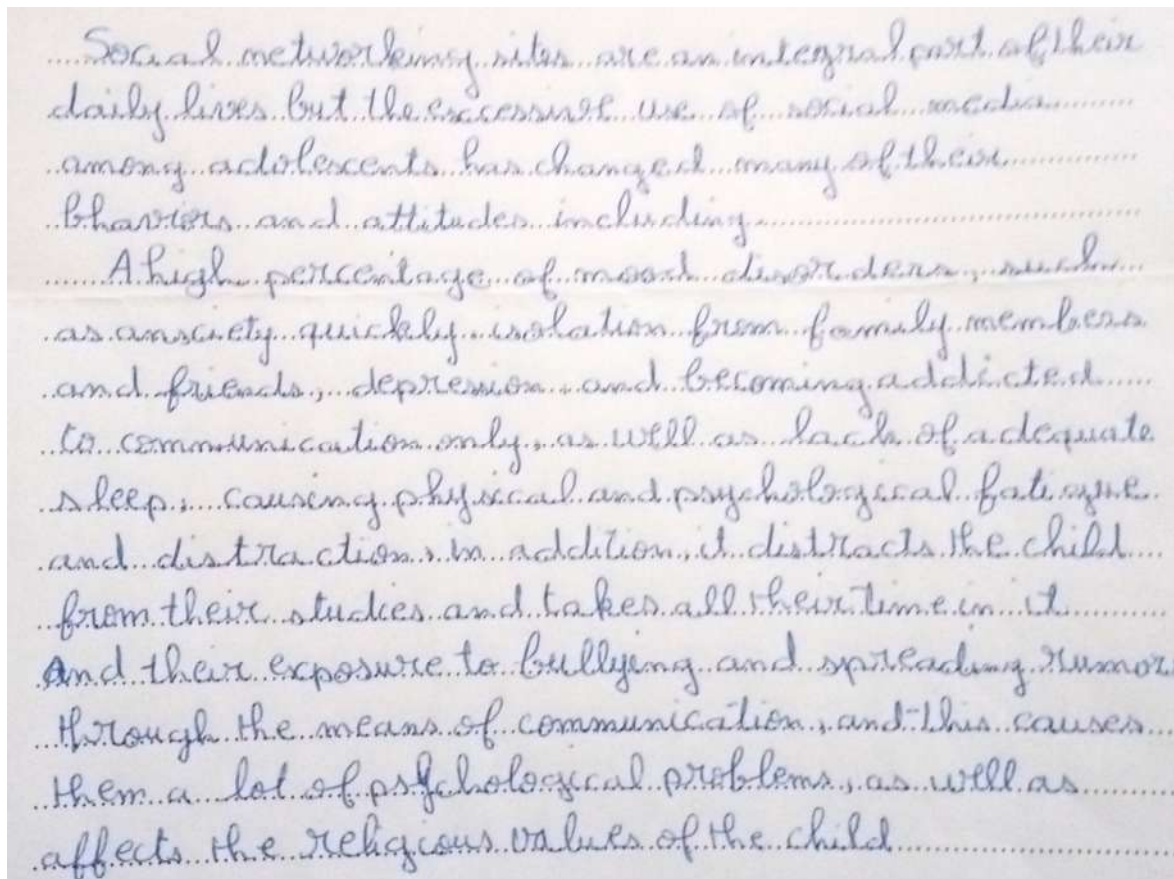 Social networking sites are an integral part of their
daily lives but the excessive use of social media
among adolescents has changed many of their
bhaviors and attitudes including
A high percentage of mood disorders, such
as anxciety quickly isolation from family members
and friends, depression, and becoming addicted
to communication only, as well as lack of adequate
sleep, causing physical and psychological fatigue
and distraction, in addition, it distracts the child
from their studies and takes all their time in it
And their exposure to bullying and spreading rumor
through the means of communication, and this causes
them a lot of psychological problems, as well as
affects the religious values of the child